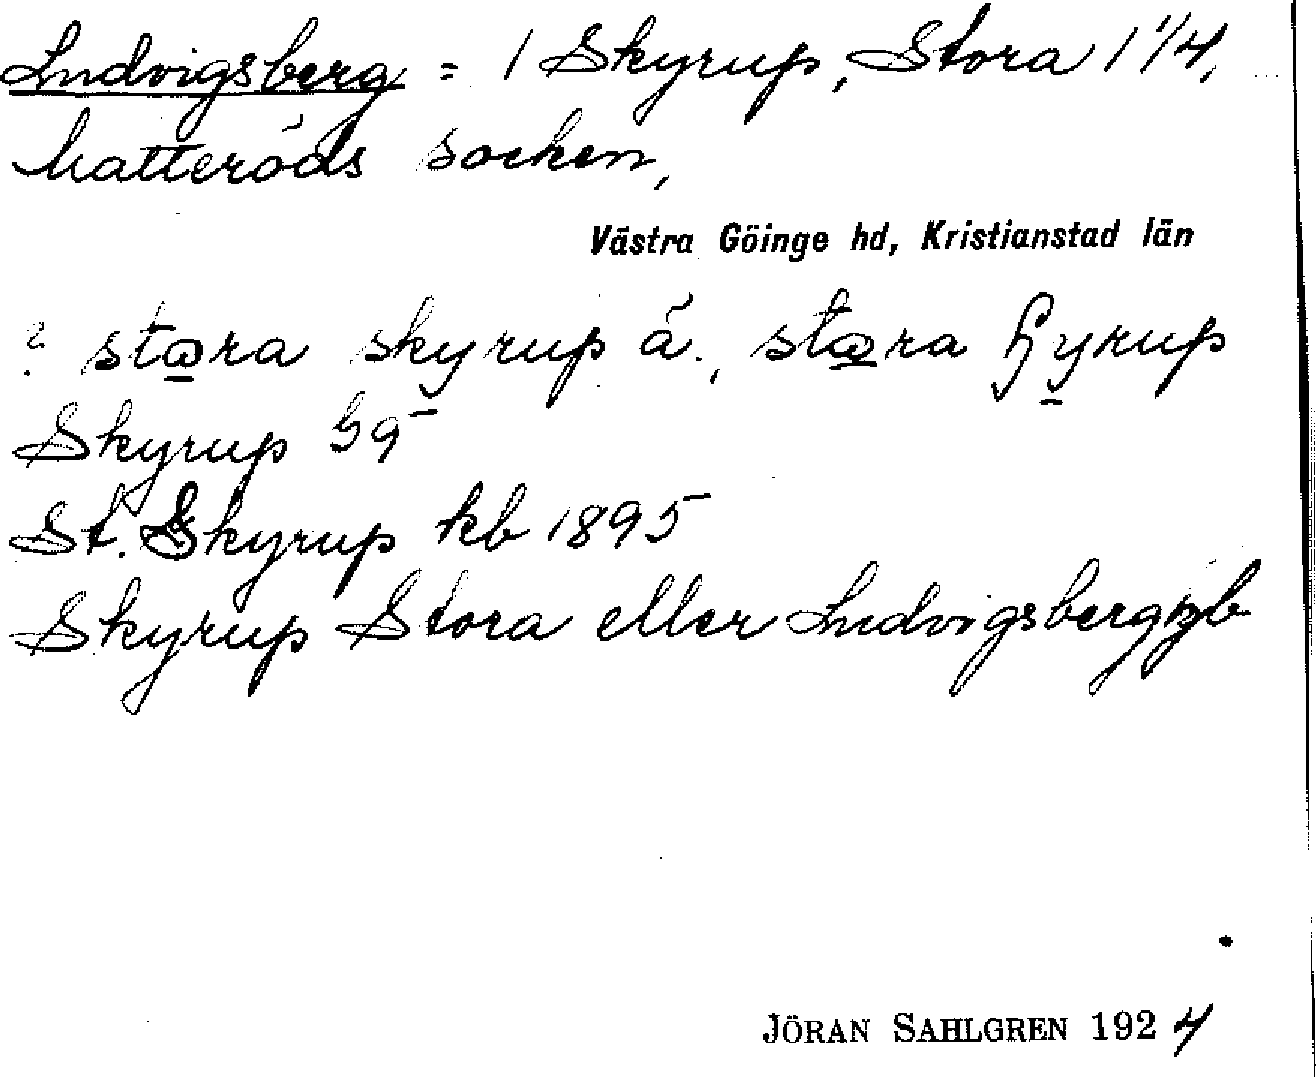 Ludvigsberg = 1 Skyrup, Stora 1 1/4,
Matteröds socken,
Västra Göinge hd, Kristianstad län
? stora skyrup ä., stora yrup
Skyrup
St. Skyrup kb 1895
Skyrup Stora eller Ludvigsberg jb
JÖRAN SAHLGREN 1924